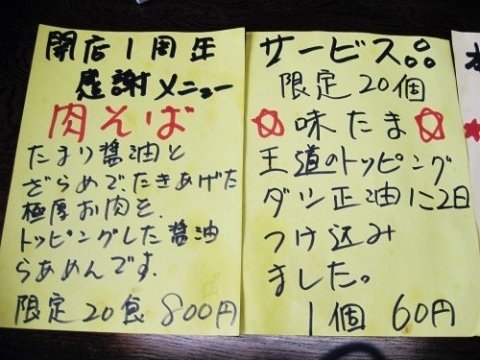 開店1周年
感謝メニュー
肉そば
たまり醤油と
ざらめで、たきあげた
極厚お肉を、
トッピングした醤油
らあめんです。
限定20食 800円
サービス品
限定20個
☆味たま☆
王道のトッピング
ダシ正油に2日
つけ込み
ました。
1個 60円